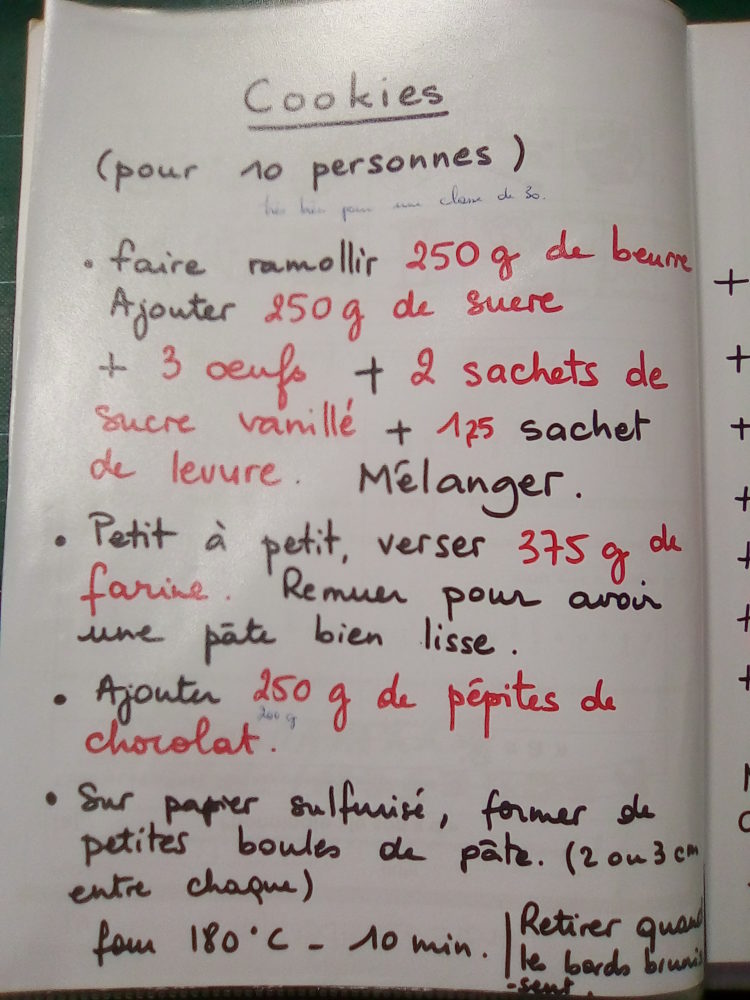 Cookies
(pour 10 personnes)
très bien pour une classe de 30.
• faire ramollir 250 g de beurre
Ajouter 250 g de sucre
+ 3 oeufs + 2 sachets de
sucre vanillé + 1,25 sachet
de levure. Mélanger.
• Petit à petit, verser 375 g de
farine. Remuer pour avoir
une pâte bien lisse.
• Ajouter 250 g de pépites de
200 g
chocolat.
• Sur papier sulfurisé, former de
petites boules de pâte. (2 ou 3 cm
entre chaque)
four 180°C - 10 min.
Retirer quand
les bords brunis
-sent.
+
+
+
+
+
+
+